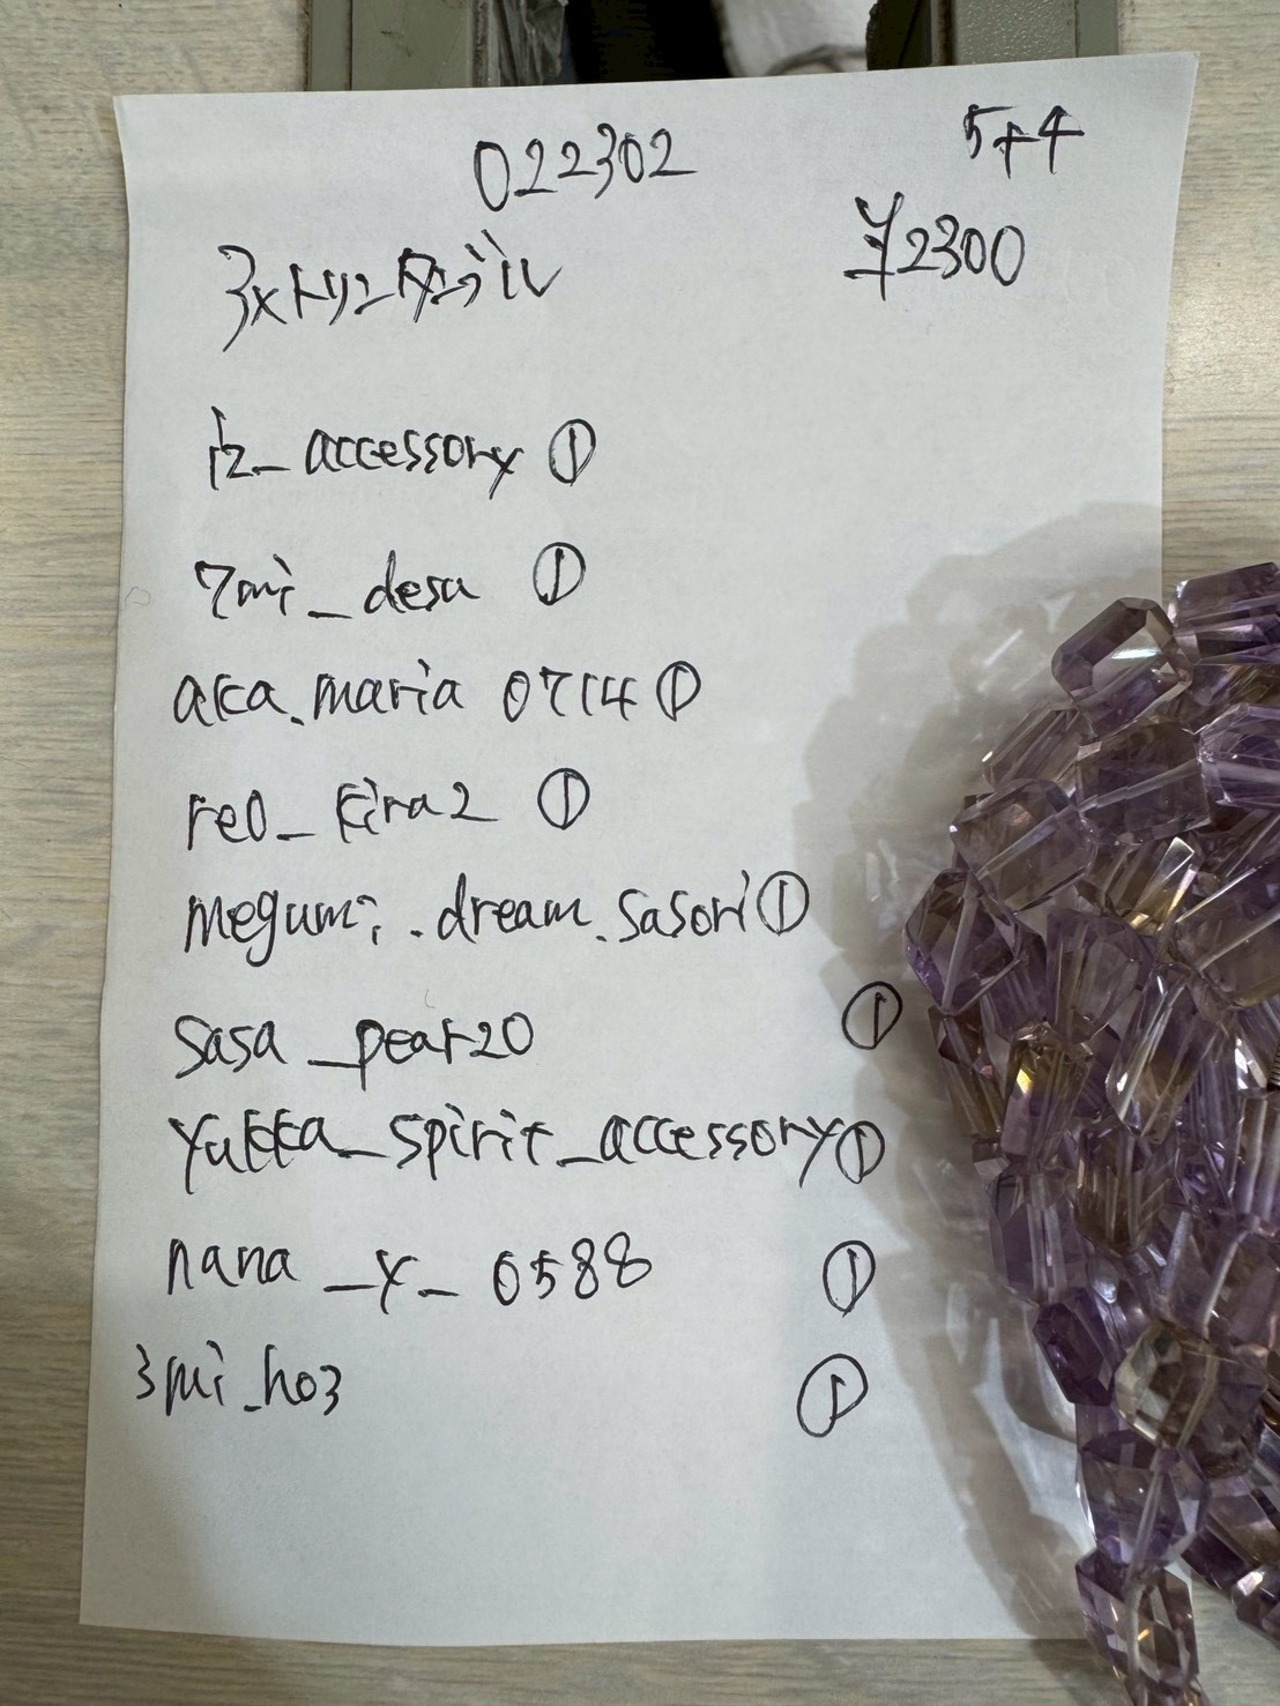 022302
5+4
¥2300
アメトリンタンブル
rz_accessory ①
7mi_desu ①
aka.maria 0714 ①
reo_kira2 ①
megumi.dream.sasori ①
sasa_pear20 ①
yukka_spirit_accessory ①
nana_y_0588 ①
3mi_ho3 ①